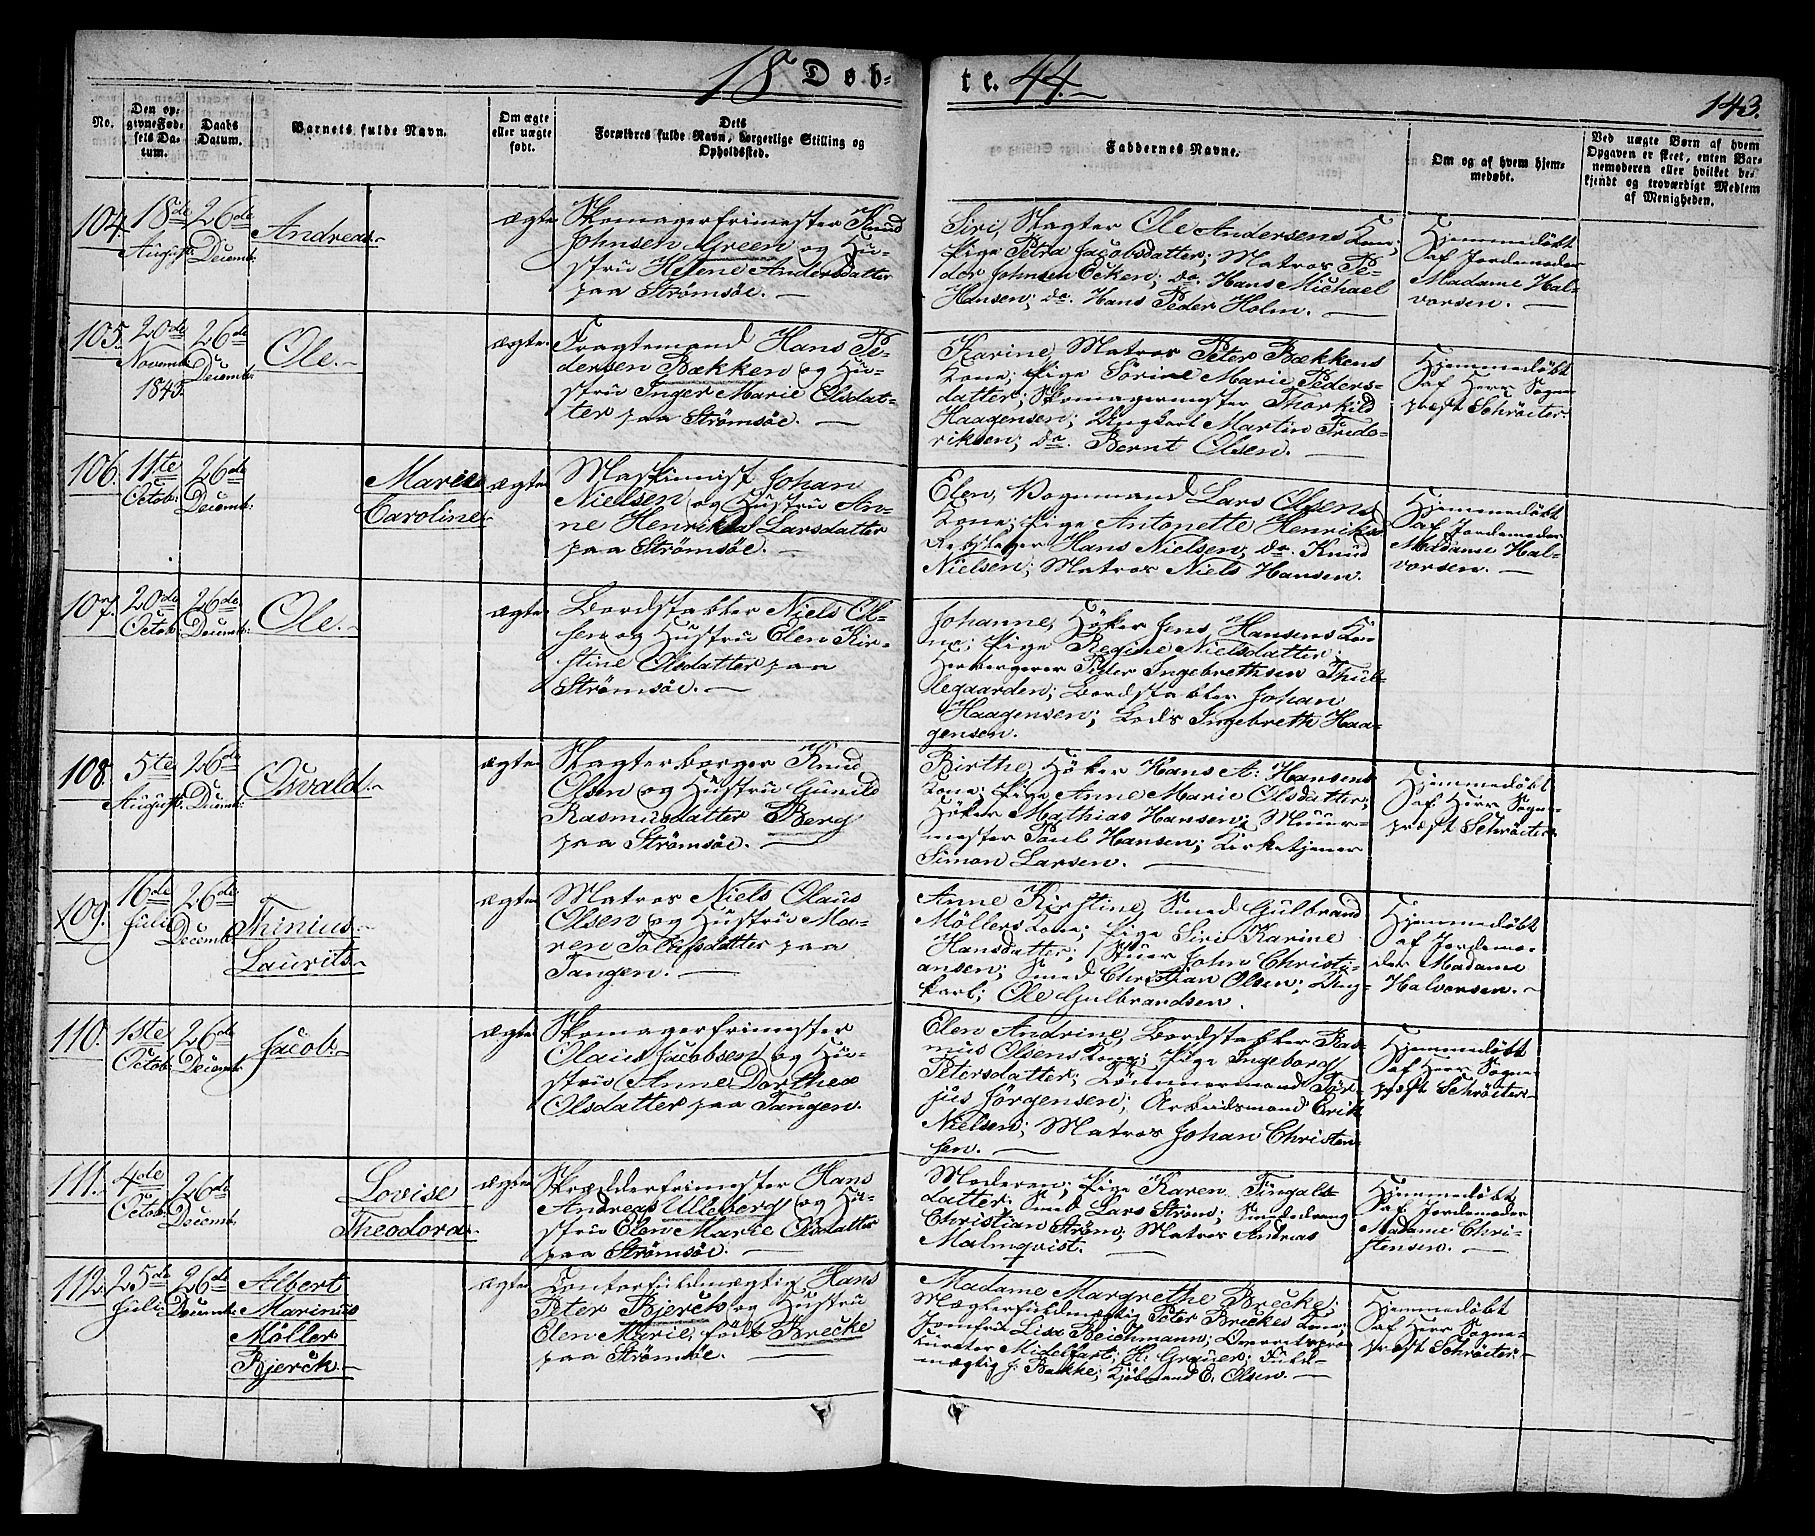 18 Døb-
te. 44.
143.
No.
Den op-
givne Fød-
sels Da-
tum.
Daabs
Datum.
Barnets fulde Navn.
Om ægte
eller uægte
født.
Dets
Forældres fulde Navn, borgerlige Stilling og
Opholdssted.
Faddernes Navne.
Om og af hvem hjem-
medøbt.
Ved uægte Børn af hvem
Opgaven er skeet, enten Bar-
nemoderen eller hvilket be-
kjendt og troværdigt Medlem
af Menigheden.
104. 18de August. 26de Decemb:
Andreas.
ægte
Skomagerfrimester Knud
Johnsen Green og Hu-
strü Helene Andersdatter
paa Strømsöe.
Siri, Slagter Ole Andersens Kone;
Pige Petra Jacobsdatter; Matros Pe-
der Johnsen Ecken; do. Hans Michael
Hansen; do. Hans Peder Holm.
Hjemmedöbt
af Jordemoder
Madame Hal-
vorsen.
105. 20de Novemb: 1843. 26de Decemb:
Ole.
ægte
Fragtemand Hans Pe-
dersen Bækken og Hu-
strü Inger Marie Olsdat-
ter paa Strømsöe.
Karine, Matros Peter Bækkens
Kone; Pige Sörine Marie Peders-
datter; Skomagermester Thorkild
Haagensen; Ungkarl Martin Frede-
riksen; do. Bernt Olsen.
Hjemmedöbt
af Herr Sogne-
præst Schröiter
106. 11te Octob: 26de Decemb:
Marie
Caroline
ægte
Maskinmist Johan
Nielsen og Hustrü An-
ne Henrikka Larsdatter
paa Strömsöe.
Elen, Vognmand Lars Olsens
Kone; Pige Antonette Henriksd
Rebslager Hans Nielsen; do. Knud
Nielsen; Matros Niels Hansen.
Hjemmedöbt
af Jordemoder
Madame Hal-
vorsen.
107. 20de Octob: 26de Decemb:
Ole.
ægte
Bordstabler Niels Ol-
sen og Hustrü Elen Kir-
stine Olsdatter paa
Strömsöe.
Johanne, Höker Jens Hansens Ko-
ne; Pige Regine Nielsdatter;
Herbergerer Peder Ingebrethsen Thul-
legaarden; Bordstabler Johan
Haagensen; Lods Ingebreth Haa-
gensen.
108. 5te August: 26de Decemb:
Osvald.
ægte
Slagterborger Knud
Olsen og Hustrü Gunild
Rasmusdatter Berg
paa Strömsöe.
Birthe, Höker Hans A: Hansens
Kone; Pige Anne Marie Olsdatter;
Höker Mathias Hansen; Muur-
mester Paul Hansen; Kirketjener
Simon Larsen.
Hjemmedöbt
af Herr Sogne-
præst Schröiter
109. 16de Juli 26de Decemb:
Thinius
Laurits
ægte
Matros Niels Olaus
Olsen og Hustrü Ma-
ren Tollefsdatter paa
Tangen.
Anne Kirstine, Smed Gulbrand
Möllers Kone; Pige Siri Karine
Hansdatter; Stuer John Christi-
ansen; Smed Christian Olsen; Ung-
karl; Ole Gulbrandsen.
Hjemmedöbt
af Jordemo-
der Madame
Halvorsen.
110. 1ste Octob: 26de Decemb:
Jacob.
ægte
Skomagerfrimester
Olaus Jacobsen og Hu-
strü Anne Dorthea
Olsdatter paa Tangen.
Elen Andrine, Bordstabler Ras-
mus Olsens Kone; Pige Ingeborg
Petersdatter; Tömmermand Tör-
jus Jörgensen; Arbeidsmand Erik
Nielsen; Matros Johan Christen-
sen.
Hjemmedöbt
af Herr Sogne-
præst Schröiter
111. 4de Octob: 26de Decemb:
Lovise
Theodora
ægte
Skrædderfrimester Hans
Andreas Ulleberg og Hu-
strü Elen Marie Olsdatter
paa Strömsöe.
Moderen; Pige Karen Fingals-
datter; Smed Lars Ström; Smededreng
Christian Ström; Matros Andreas
Malmqvist.
Hjemmedöbt
af Jordemoder
Madame Chri-
stensen.
112. 25de Juli 26de Decemb:
Albert
Marinus
Möller
Bjerch.
ægte
Contorfuldmægtig Hans
Peter Bjerch og Hustrü
Elen Marie, födt Brecke
paa Strömsöe.
Madame Margrethe Brecke;
Mæglerfuldmægtig Peter Breckes Kone;
Jomfru Lisa Beichmann;
Kurator Midelfart; H: Grauer; Fuld-
mægtig J. Bakke; Kjöbmand E. Olsen.
Hjemmedöbt
af Herr Sogne-
præst Schröiter